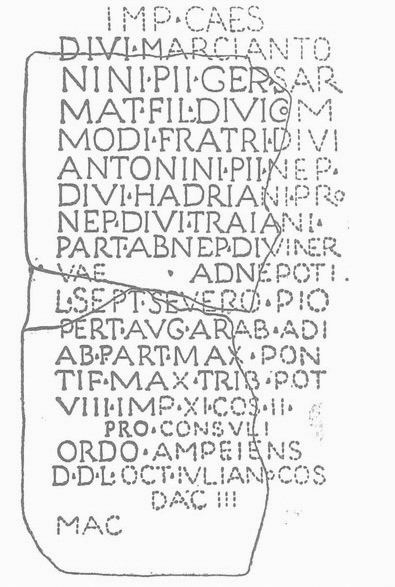 IMP·CAES
DIVI·MARCIANTO
NINI·PII·GERSAR
MAT·FIL·DIVICOM
MODI·FRATRI·DIVI
ANTONINI·PII·NEP·
DIVI·HADRIANI·PRO
NEP·DIVI·TRAIANI·
PART·ABNEP·DIVINER
VAE · ADNEPOTI·
L·SEPT·SEVERO·PIO
PERT·AVG·ARAB·ADI
AB·PART·MAX·PON
TIF·MAX·TRIB·POT
VIII·IMP·XI·COS·II·
PRO·CONSVLI
ORDO·AMPEIENS
D·D·L·OCT·IVLIAN·COS
DAC III
MAC